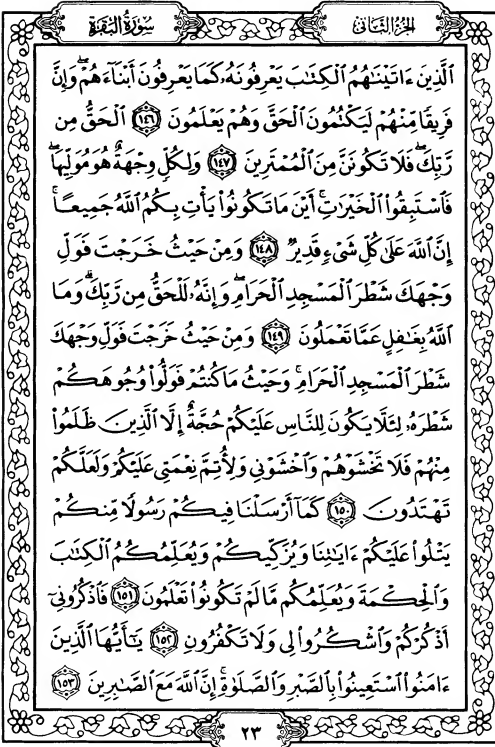 سورة البقرة
الجزء الثاني
الَّذِينَ ءَاتَيْنَٰهُمُ الْكِتَٰبَ يَعْرِفُونَهُۥ كَمَا يَعْرِفُونَ أَبْنَآءَهُمْ ۖ وَإِنَّ
فَرِيقًا مِّنْهُمْ لَيَكْتُمُونَ الْحَقَّ وَهُمْ يَعْلَمُونَ ١٤٦ الْحَقُّ مِن
رَّبِّكَ ۖ فَلَا تَكُونَنَّ مِنَ الْمُمْتَرِينَ ١٤٧ وَلِكُلٍّ وِجْهَةٌ هُوَ مُوَلِّيهَا ۖ
فَاسْتَبِقُوا۟ الْخَيْرَٰتِ ۚ أَيْنَ مَا تَكُونُوا۟ يَأْتِ بِكُمُ اللَّهُ جَمِيعًا ۚ
إِنَّ اللَّهَ عَلَىٰ كُلِّ شَىْءٍ قَدِيرٌ ١٤٨ وَمِنْ حَيْثُ خَرَجْتَ فَوَلِّ
وَجْهَكَ شَطْرَ الْمَسْجِدِ الْحَرَامِ ۖ وَإِنَّهُۥ لَلْحَقُّ مِن رَّبِّكَ ۗ وَمَا
اللَّهُ بِغَٰفِلٍ عَمَّا تَعْمَلُونَ ١٤٩ وَمِنْ حَيْثُ خَرَجْتَ فَوَلِّ وَجْهَكَ
شَطْرَ الْمَسْجِدِ الْحَرَامِ ۚ وَحَيْثُ مَا كُنتُمْ فَوَلُّوا۟ وُجُوهَكُمْ
شَطْرَهُۥ لِئَلَّا يَكُونَ لِلنَّاسِ عَلَيْكُمْ حُجَّةٌ إِلَّا الَّذِينَ ظَلَمُوا۟
مِنْهُمْ فَلَا تَخْشَوْهُمْ وَاخْشَوْنِى وَلِأُتِمَّ نِعْمَتِى عَلَيْكُمْ وَلَعَلَّكُمْ
تَهْتَدُونَ ١٥٠ كَمَآ أَرْسَلْنَا فِيكُمْ رَسُولًا مِّنكُمْ
يَتْلُوا۟ عَلَيْكُمْ ءَايَٰتِنَا وَيُزَكِّيكُمْ وَيُعَلِّمُكُمُ الْكِتَٰبَ
وَالْحِكْمَةَ وَيُعَلِّمُكُم مَّا لَمْ تَكُونُوا۟ تَعْلَمُونَ ١٥١ فَاذْكُرُونِىٓ
أَذْكُرْكُمْ وَاشْكُرُوا۟ لِى وَلَا تَكْفُرُونِ ١٥٢ يَٰٓأَيُّهَا الَّذِينَ
ءَامَنُوا۟ اسْتَعِينُوا۟ بِالصَّبْرِ وَالصَّلَوٰةِ ۚ إِنَّ اللَّهَ مَعَ الصَّٰبِرِينَ ١٥٣
٢٣